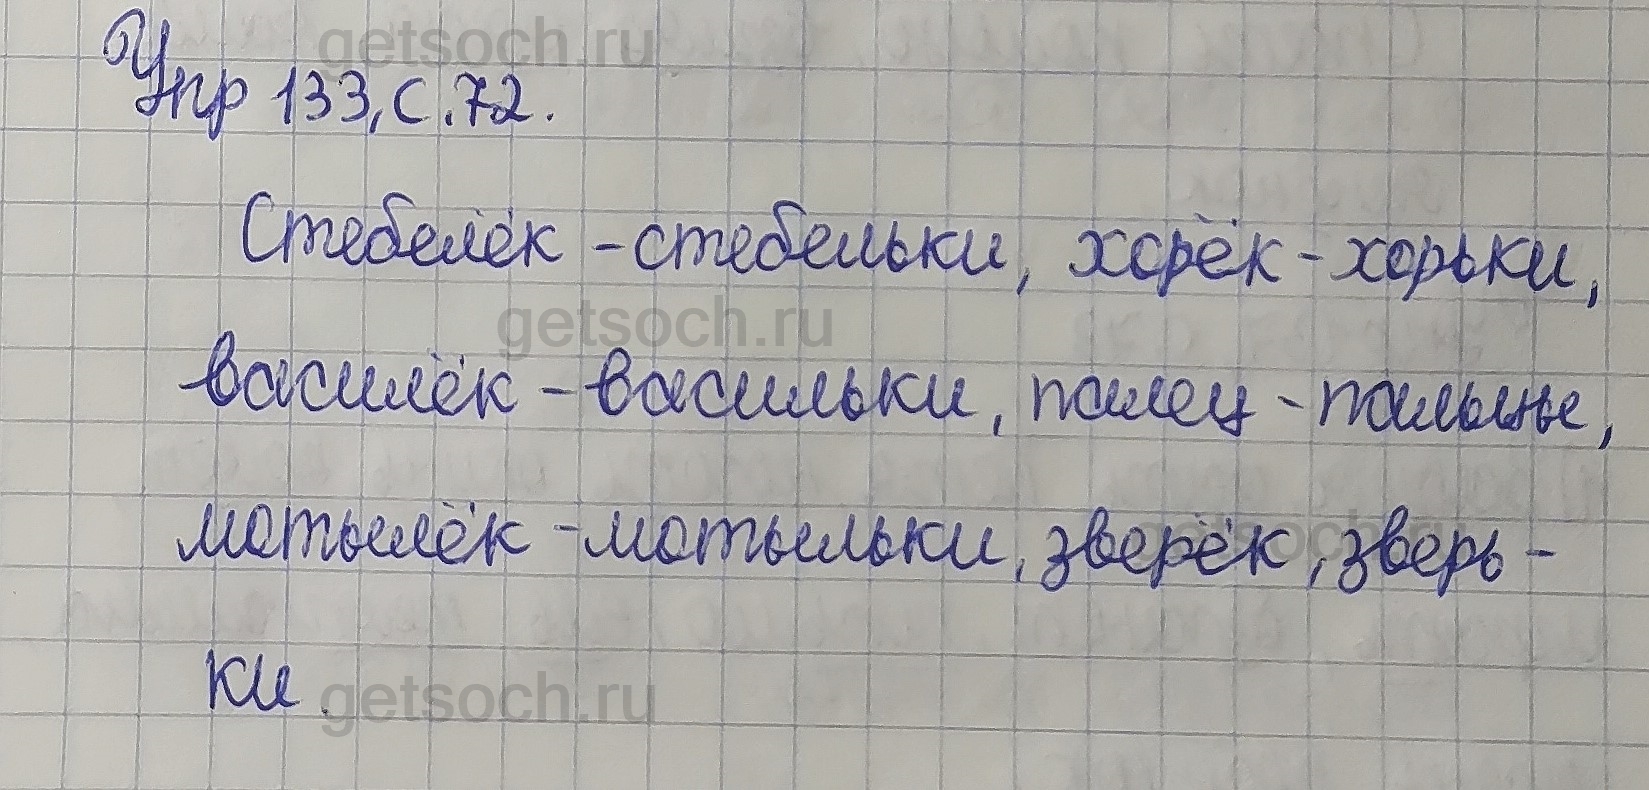 getsoch.ru
Упр 133, с. 72.
Стебелёк - стебельки, хорёк - хорьки,
getsoch.ru
василёк - васильки, палец - пальцы,
мотылёк - мотыльки, зверёк, зверь-
getsoch.ru
ки
getsoch.ru